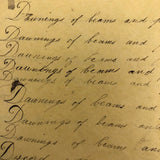 Dawnings of beams and
Dawnings of beams and
Dawnings of beams and
Dawnings of beams and
Dawnings of beams and
Dawnings of beams and
Dawnings of beams and
Dawnings of beams and